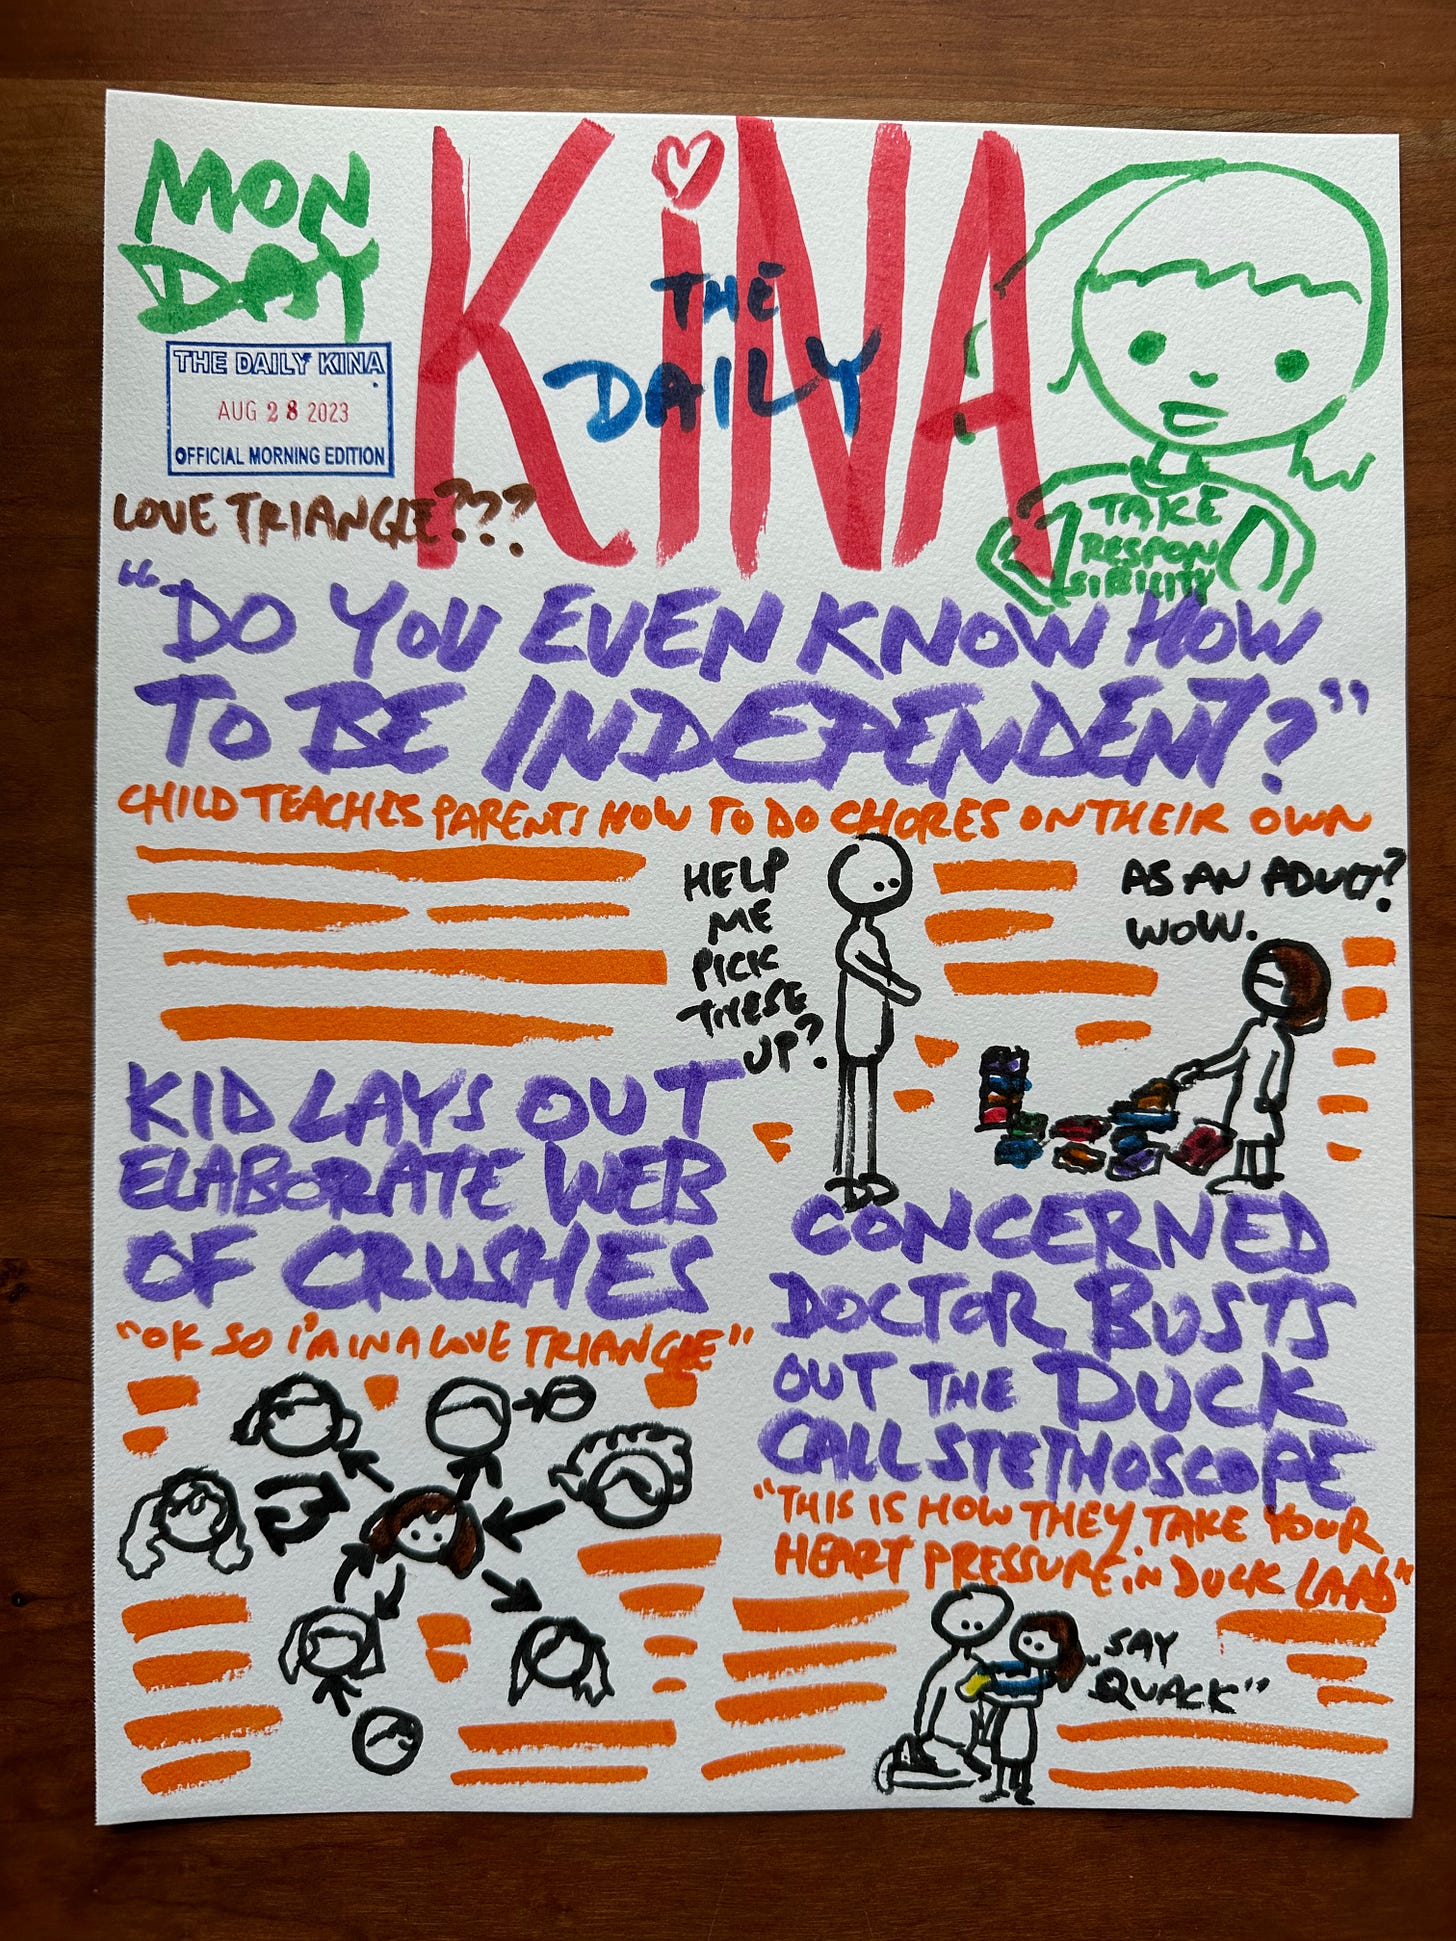 MON
DAY
KiNA
THE
DAILY
THE DAILY KINA
AUG 28 2023
OFFICIAL MORNING EDITION
TAKE
RESPON
SIBILITY
LOVE TRIANGLE???
"DO YOU EVEN KNOW HOW
TO BE INDEPENDENT?"
CHILD TEACHES PARENTS HOW TO DO CHORES ON THEIR OWN
HELP
ME
PICK
THESE
UP?
AS AN ADULT?
WOW.
KID LAYS OUT
ELABORATE WEB
OF CRUSHES
"OK SO I'M IN A LOVE TRIANGLE"
CONCERNED
DOCTOR BUSTS
OUT THE DUCK
CALL STETHOSCOPE
"THIS IS HOW THEY TAKE YOUR
HEART PRESSURE IN DUCK LAND"
"SAY
QUACK"